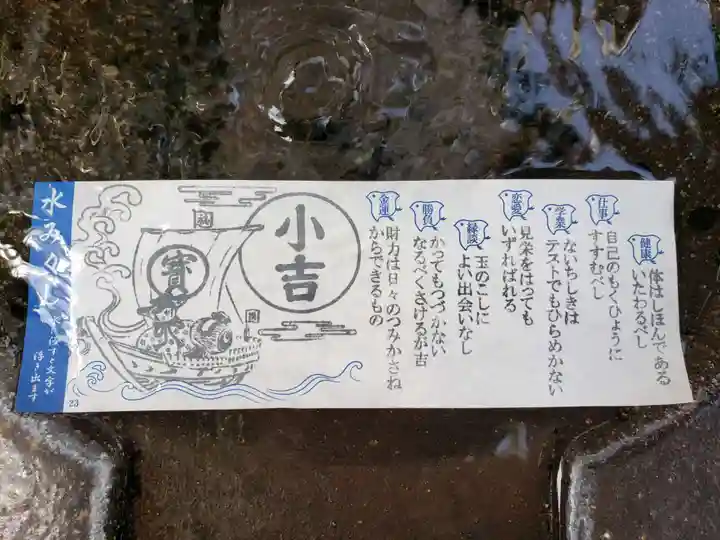 健康
体はしほんである
いたわるべし
仕事
自己のもくひょうに
すすむべし
学業
ないちしきは
テストでもひらめかない
恋愛
見栄をはっても
いずればれる
縁談
玉のこしに
よい出会いなし
勝負
かってもつづかない
なるべくさけるが吉
金運
財力は日々のつみかさね
からできるもの
小吉
寳
水みくじ
浸すと文字が
浮き出ます
23